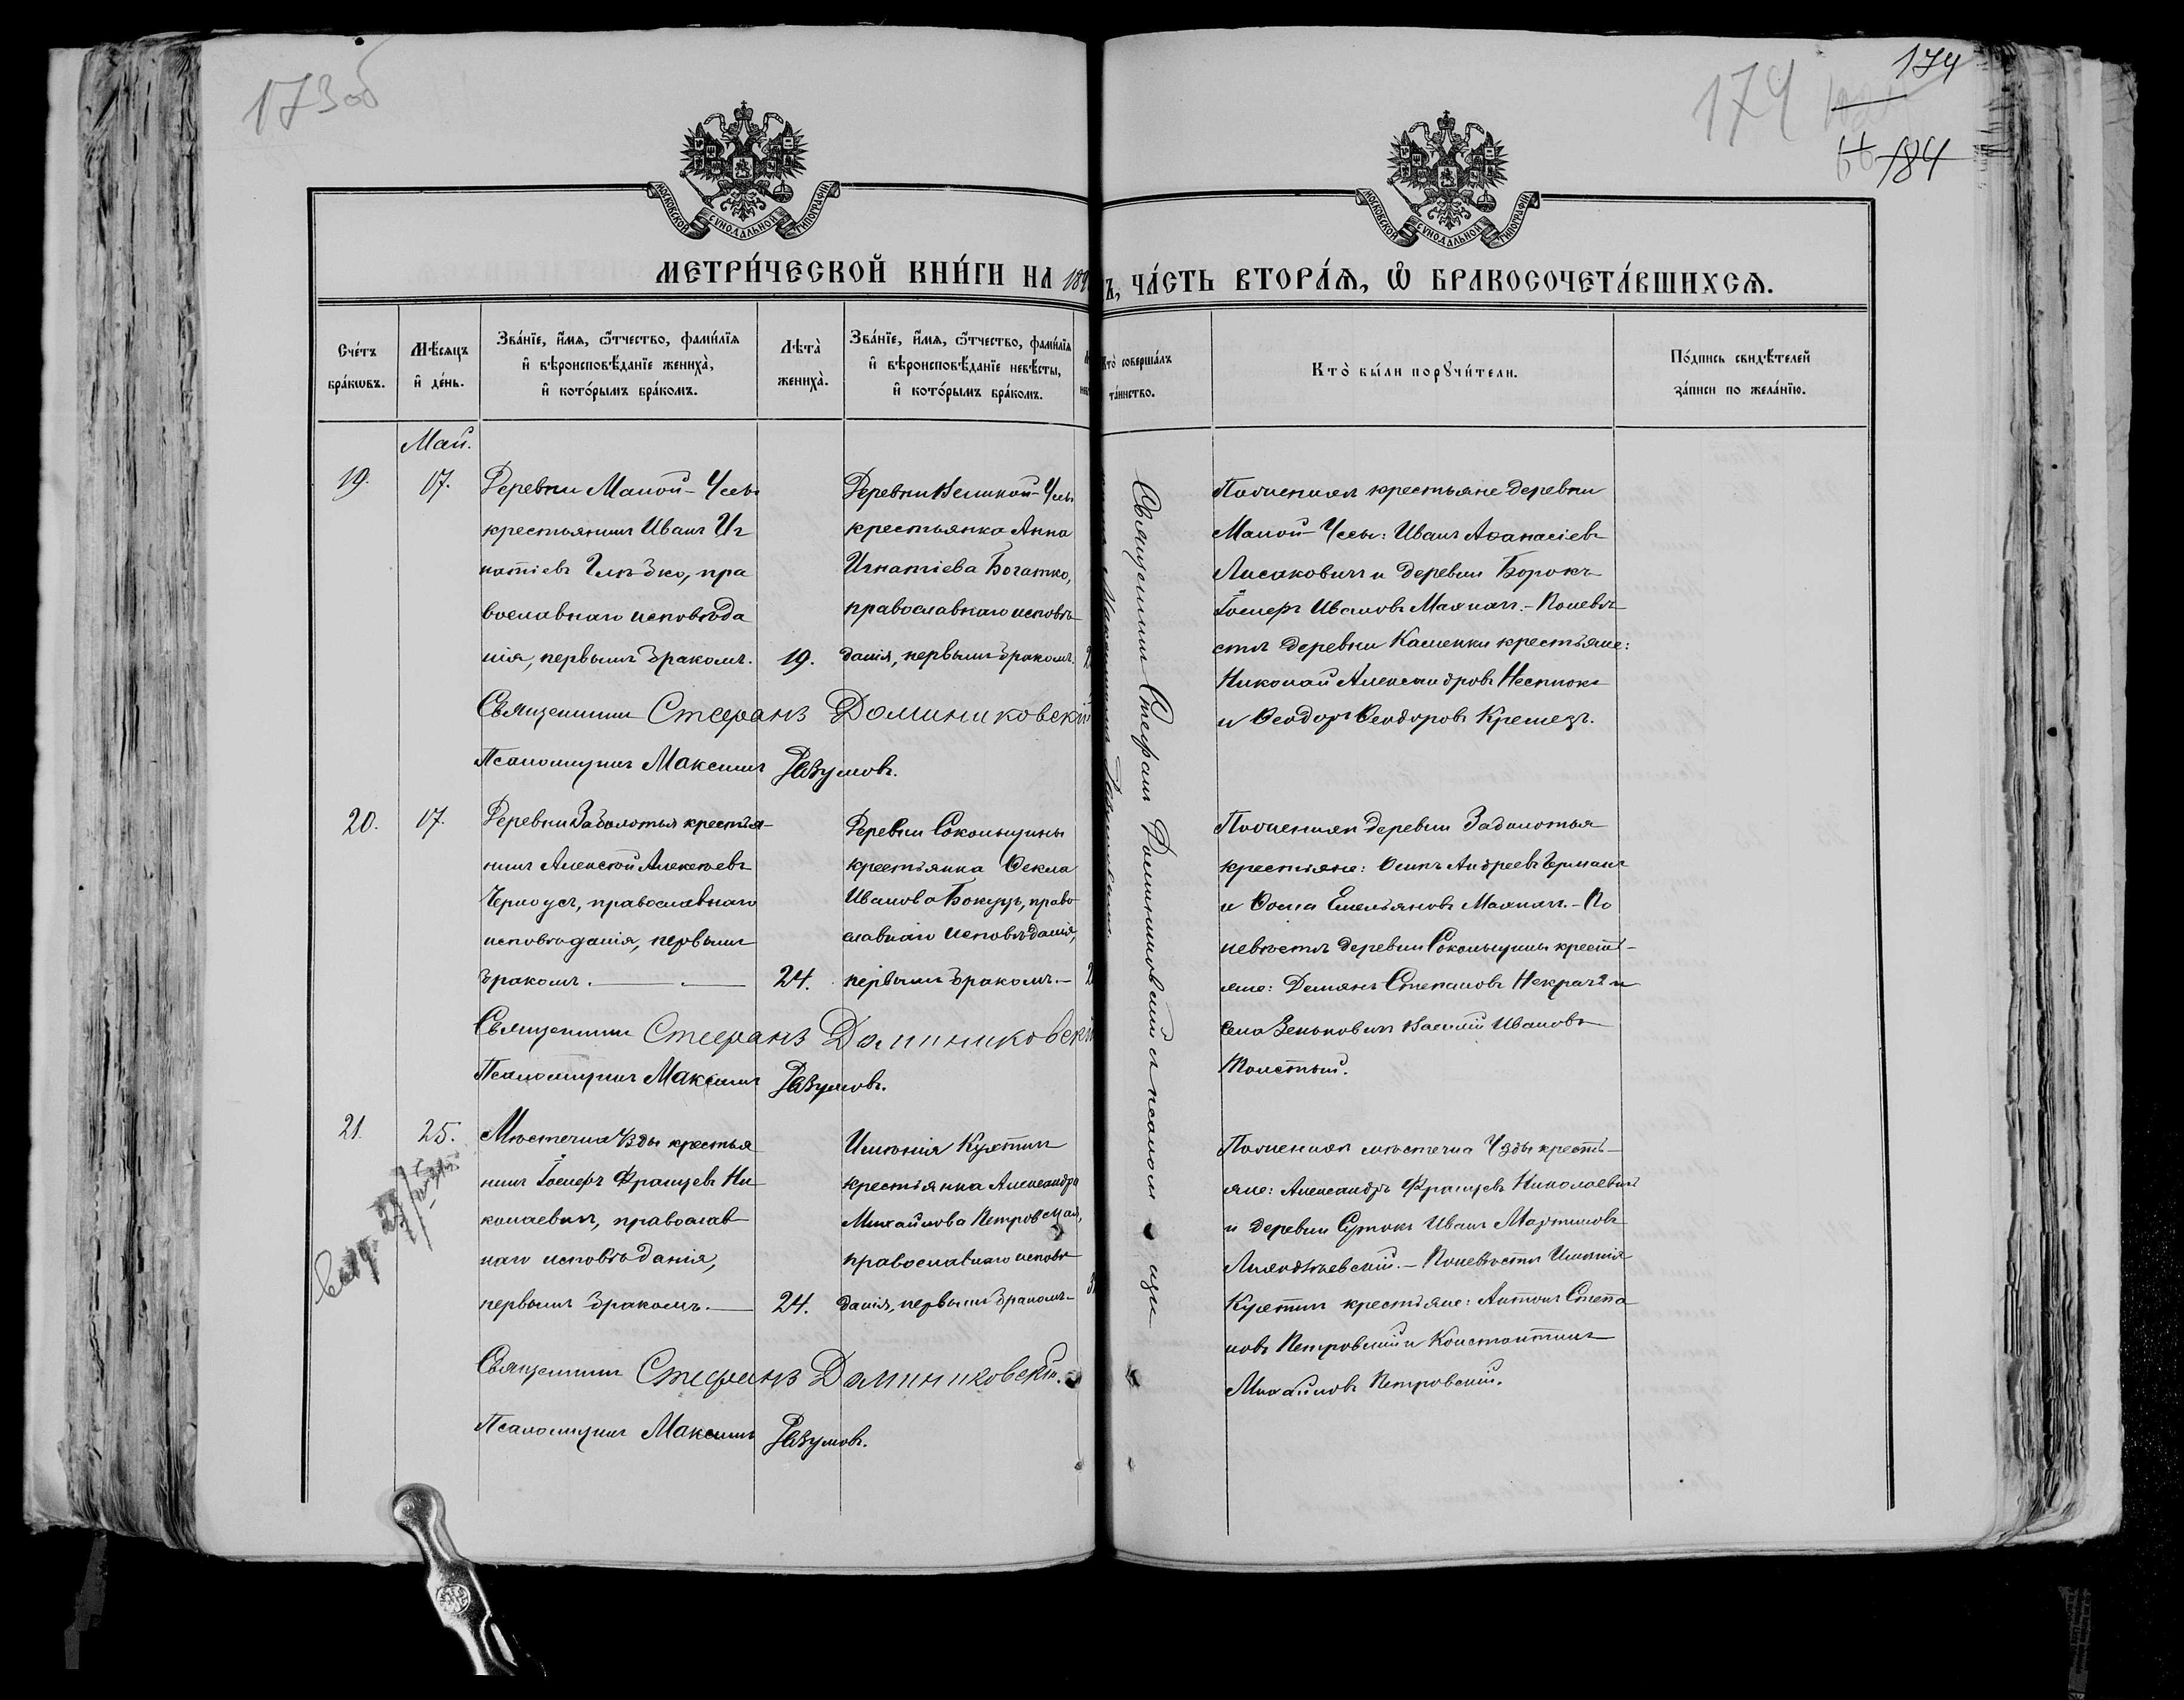 173об
174
174
184
МОСКОВСКОЙ СУНОДАЛЬНОЙ ТИПОГРАФІИ
МОСКОВСКОЙ СУНОДАЛЬНОЙ ТИПОГРАФІИ
МЕТРИ́ЧЕСКОЙ КНИ́ГИ НА 189
Ъ, ЧА́СТЬ ВТОРА́Ѧ, Ѽ БРАКОСОЧЕТА́ВШИХСѦ.
Сче́тъ бра́кωвъ.
Мѣ́сѧцъ и҆ де́нь.
Зва́нїе, и҆́мѧ, ѻ҆́тчество, фами́лїѧ
и҆ вѣроисповѣ́данїе жениха̀,
и҆ кото́рымъ бра́комъ.
Лѣта̀ жениха̀.
Зва́нїе, и҆́мѧ, ѻ҆́тчество, фами́лїѧ
и҆ вѣроисповѣ́данїе невѣ́сты,
и҆ кото́рымъ бра́комъ.
Кто̀ соверша́лъ
та́инство.
Кто̀ бы́ли порꙋчи́тели.
По́дпись свидѣ́телей
за́писи по жела́нїю.
Май.
19.
17.
Деревни Малой-Усы
крестьянинъ Иванъ Иг
натіевъ, пра
вославнаго исповѣда
нія, первымъ бракомъ.
19.
Деревни Великой-Усы
крестьянка Анна
Игнатіева Богатко,
православнаго исповѣ-
данія, первымъ бракомъ.
По женихѣ крестьяне деревни
Малой-Усы: Иванъ Аѳанасіевъ
Лисаковичъ и деревни Борокъ
Іосифъ Ивановъ Махначъ.- По невѣ-
стѣ деревни Каменки крестьяне:
Николай Александровъ
и Ѳеодоръ Ѳеодоровъ.
Священникъ Стефанъ Доминиковскій
Псаломщикъ Максимъ Разумовъ.
20.
17.
Деревни Заболотья крестья-
нинъ Алексѣй Алексѣевъ
Черноусъ, православнаго
исповѣданія, первымъ
бракомъ.
24.
Деревни Сокольщины
крестьянка Ѳекла
Иванова, право
славнаго исповѣданія,
первымъ бракомъ.-
По женихѣ деревни Заболотья
крестьяне: Осипъ Андреевъ Германъ
и Ѳома Емельяновъ Махначъ.- По
невѣстѣ деревни Сокольщины кресть-
яне: Демьянъ Степановъ и
села Зеньковичъ Василій Ивановъ
Толстый.
Священникъ Стефанъ Доминиковскій
Псаломщикъ Максимъ Разумовъ.
21.
25.
Мѣстечка Узды крестья
нинъ Іосифъ Францевъ Ни
колаевичъ, православ
наго исповѣданія,
первымъ бракомъ.
24.
Имѣнія Кухтичъ
крестьянка Александра
Михайлова Петровская,
православнаго исповѣ
данія, первымъ бракомъ.-
По женихѣ мѣстечка Узды кресть-
яне: Александръ Францевъ Николаевичъ
и деревни Иванъ Мартиновъ
По невѣстѣ Имѣнія
Кухтичъ крестьяне: Антонъ Степа
новъ Петровскій и Константинъ
Михайловъ Петровскій.
Священникъ Стефанъ Доминиковскій.
Псаломщикъ Максимъ Разумовъ.
Священникъ Стефанъ Доминиковскій съ псаломщи
комъ Максимомъ Разумовымъ.